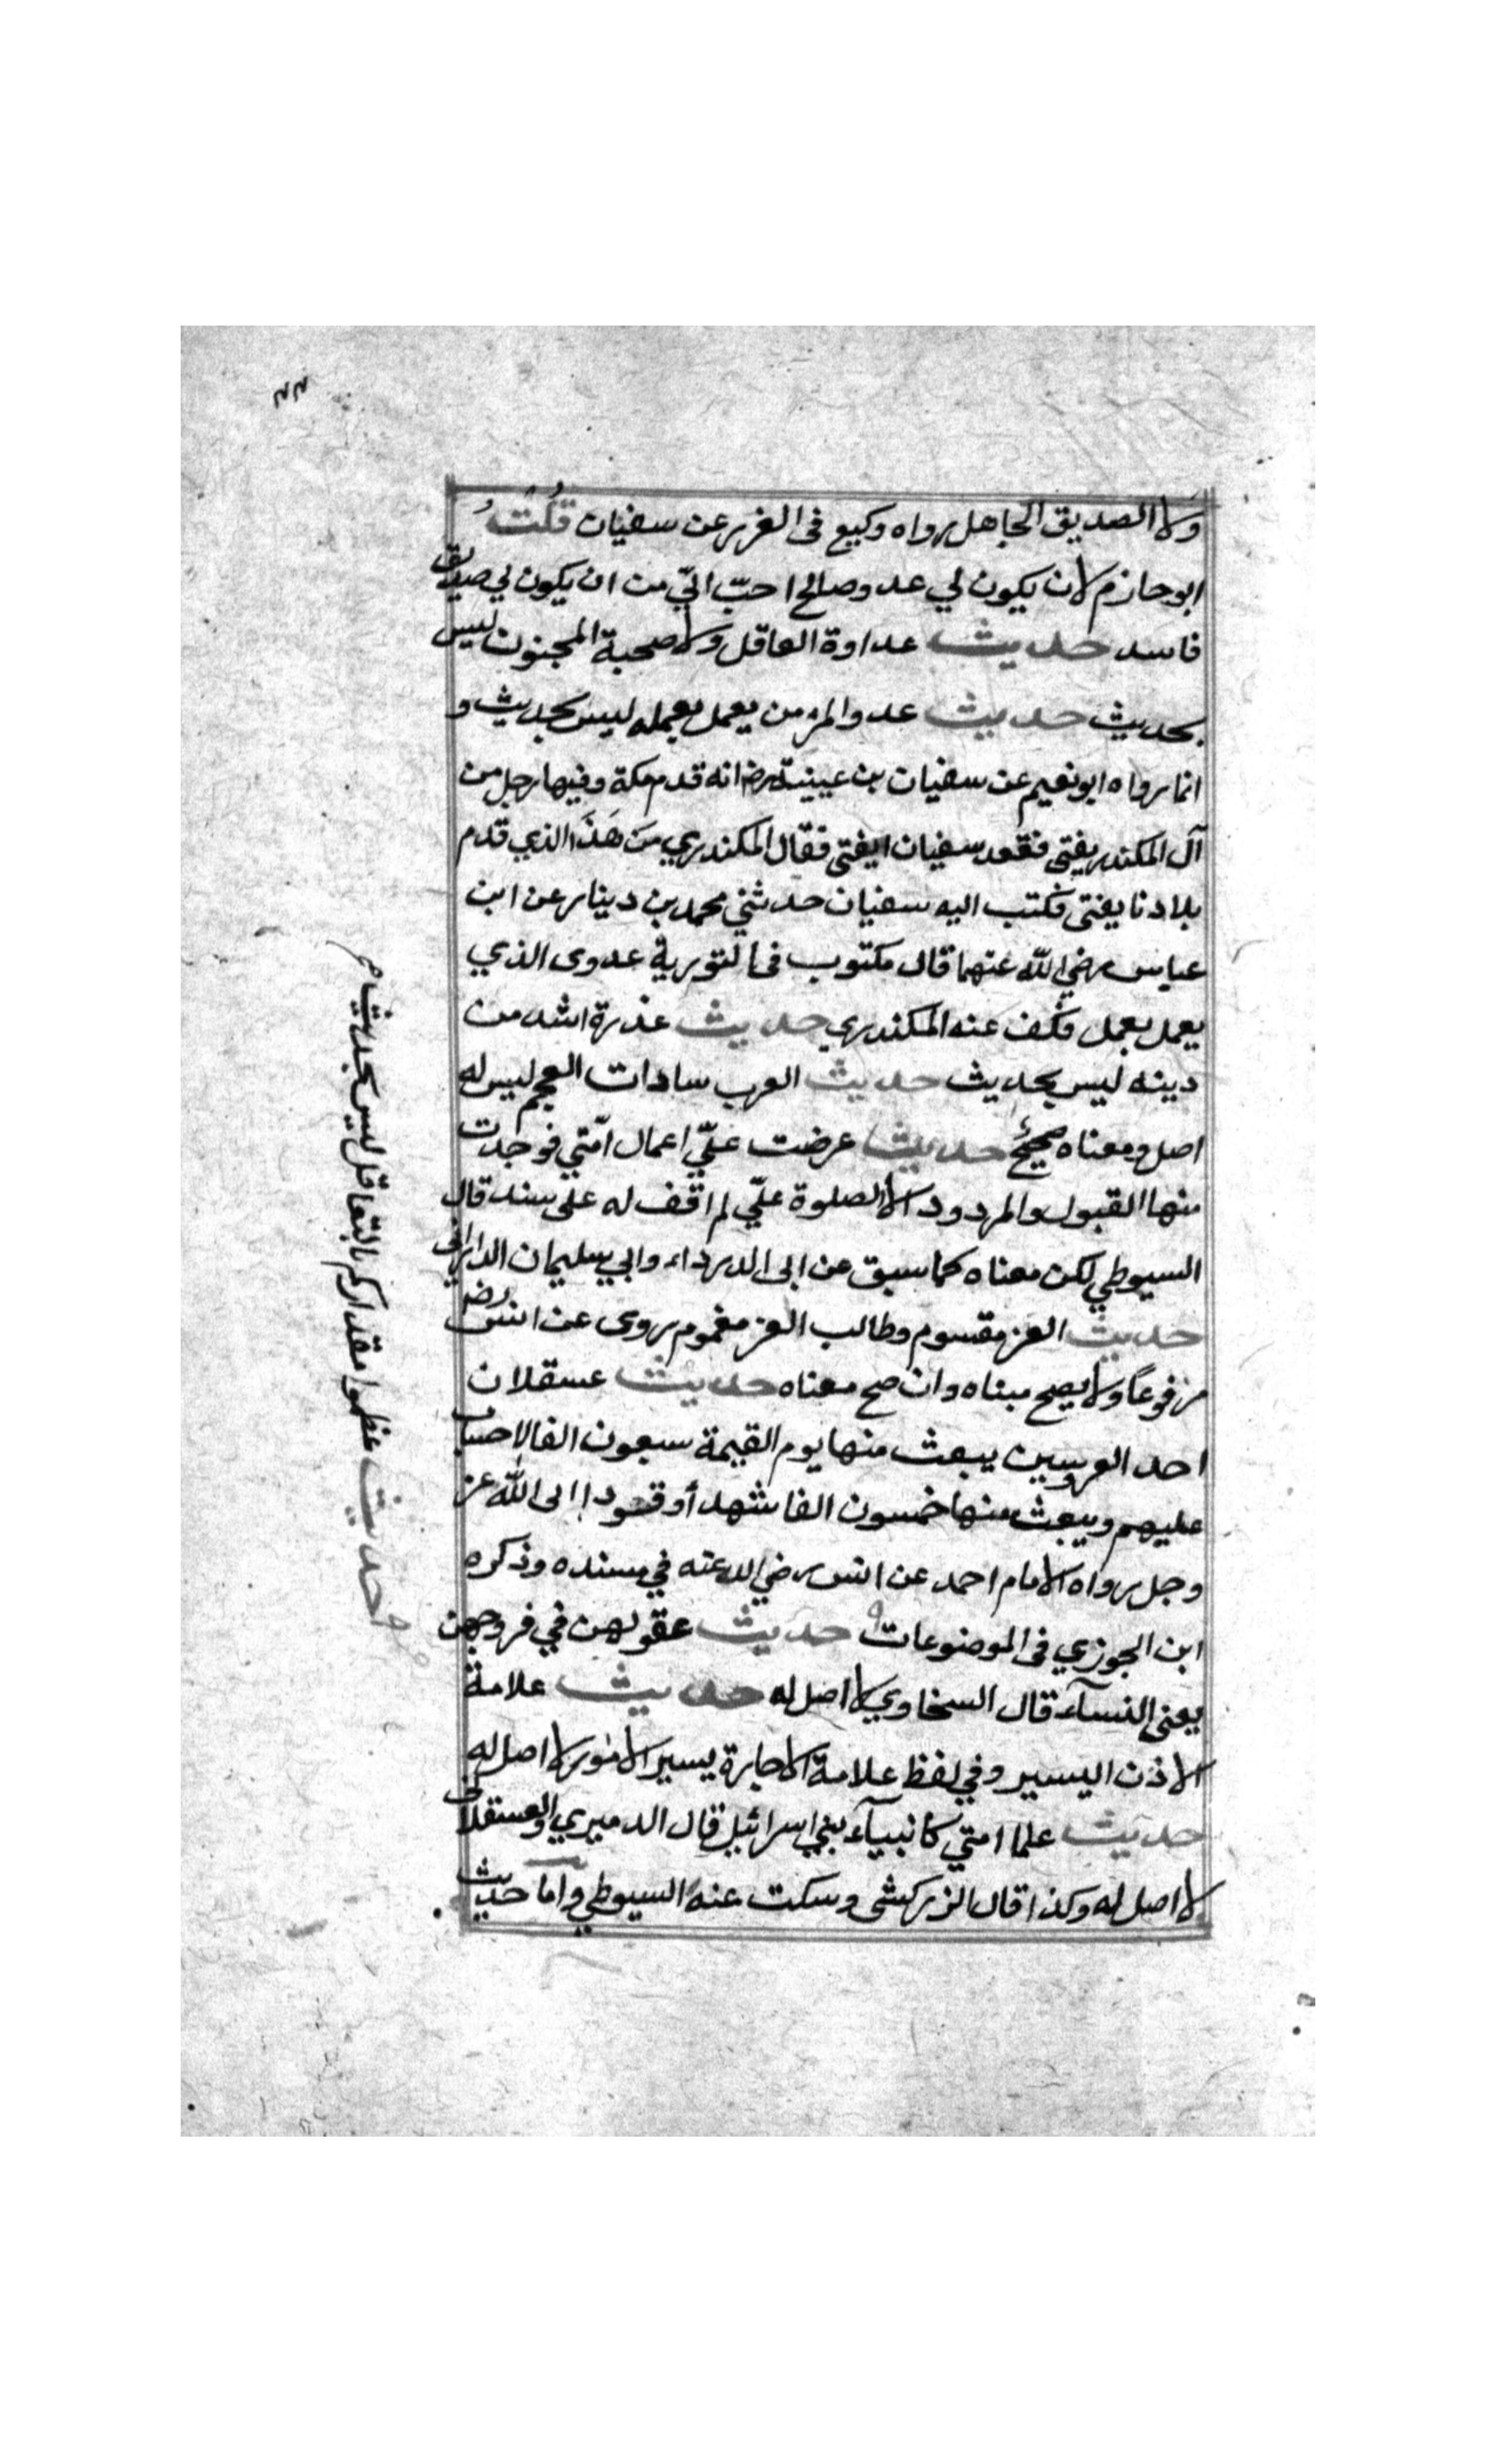 ٣٣
ولا الصديق الجاهل رواه وكيع فى الغرر عن سفيان قلت
ابو حازم لان يكون لي عدو صالح احبّ اليّ من ان يكون لي صديق
فاسد حديث عداوة العاقل ولا صحبة المجنون ليس
بحديث حديث عدو المرء من يعمل بعمله ليس بحديث و
انما رواه ابو نعيم عن سفيان بن عيينة رض انه قدم مكة وفيها رجل من
آل المكندر يفتى فقعد سفيان ايفتى فقال المكندري مَن هَذَا الذي قدم
بلادنا يفتى فكتب اليه سفيان حدثني محمد بن دينار عن ابن
عباس رضي الله عنهما قال مكتوب فى التورية عدوى الذي
يعمل بعمل فكف عنه المكندري حديث عذرة اشد من
دينه ليس بحديث حديث العرب سادات العجم ليس له
اصل ومعناه صحيح حديث عرضت عليّ اعمال امّتي فوجدت
منها القبول والمردود الا الصلوة عليّ لم اقف له على سند قال
السيوطي لكن معناه كما سبق عن ابى الدرداء وابي سليمان الدارانى
حديث العز مقسوم وطالب العز مغموم يروى عن انس رض
مرفوعًا ولا يصح مبناه وان صح معناه حديث عسقلان
احد العروسين يبعث منها يوم القيمة سبعون الفا لا حساب
عليهم ويبعث منها خمسون الفا شهدأ وقودا الى الله عز
وجل رواه الامام احمد عن انس رضي الله عنه في مسنده وذكره
ابن الجوزي فى الموضوعات حديث عقولهن في فروجهن
يعنى النسآء قال السخاوي لا اصل له حديث علامة
الاذن اليسير وفي لفظ علامة الاجارة يسير الامور لا اصل له
حديث علما امتي كانبيآء بني اسرائيل قال الدميري والعسقلانى
لا اصل له وكذا قال الزركشى وسكت عنه السيوطي واما حديث
حديث عظموا مقداركم بالتغافل ليس بحديث